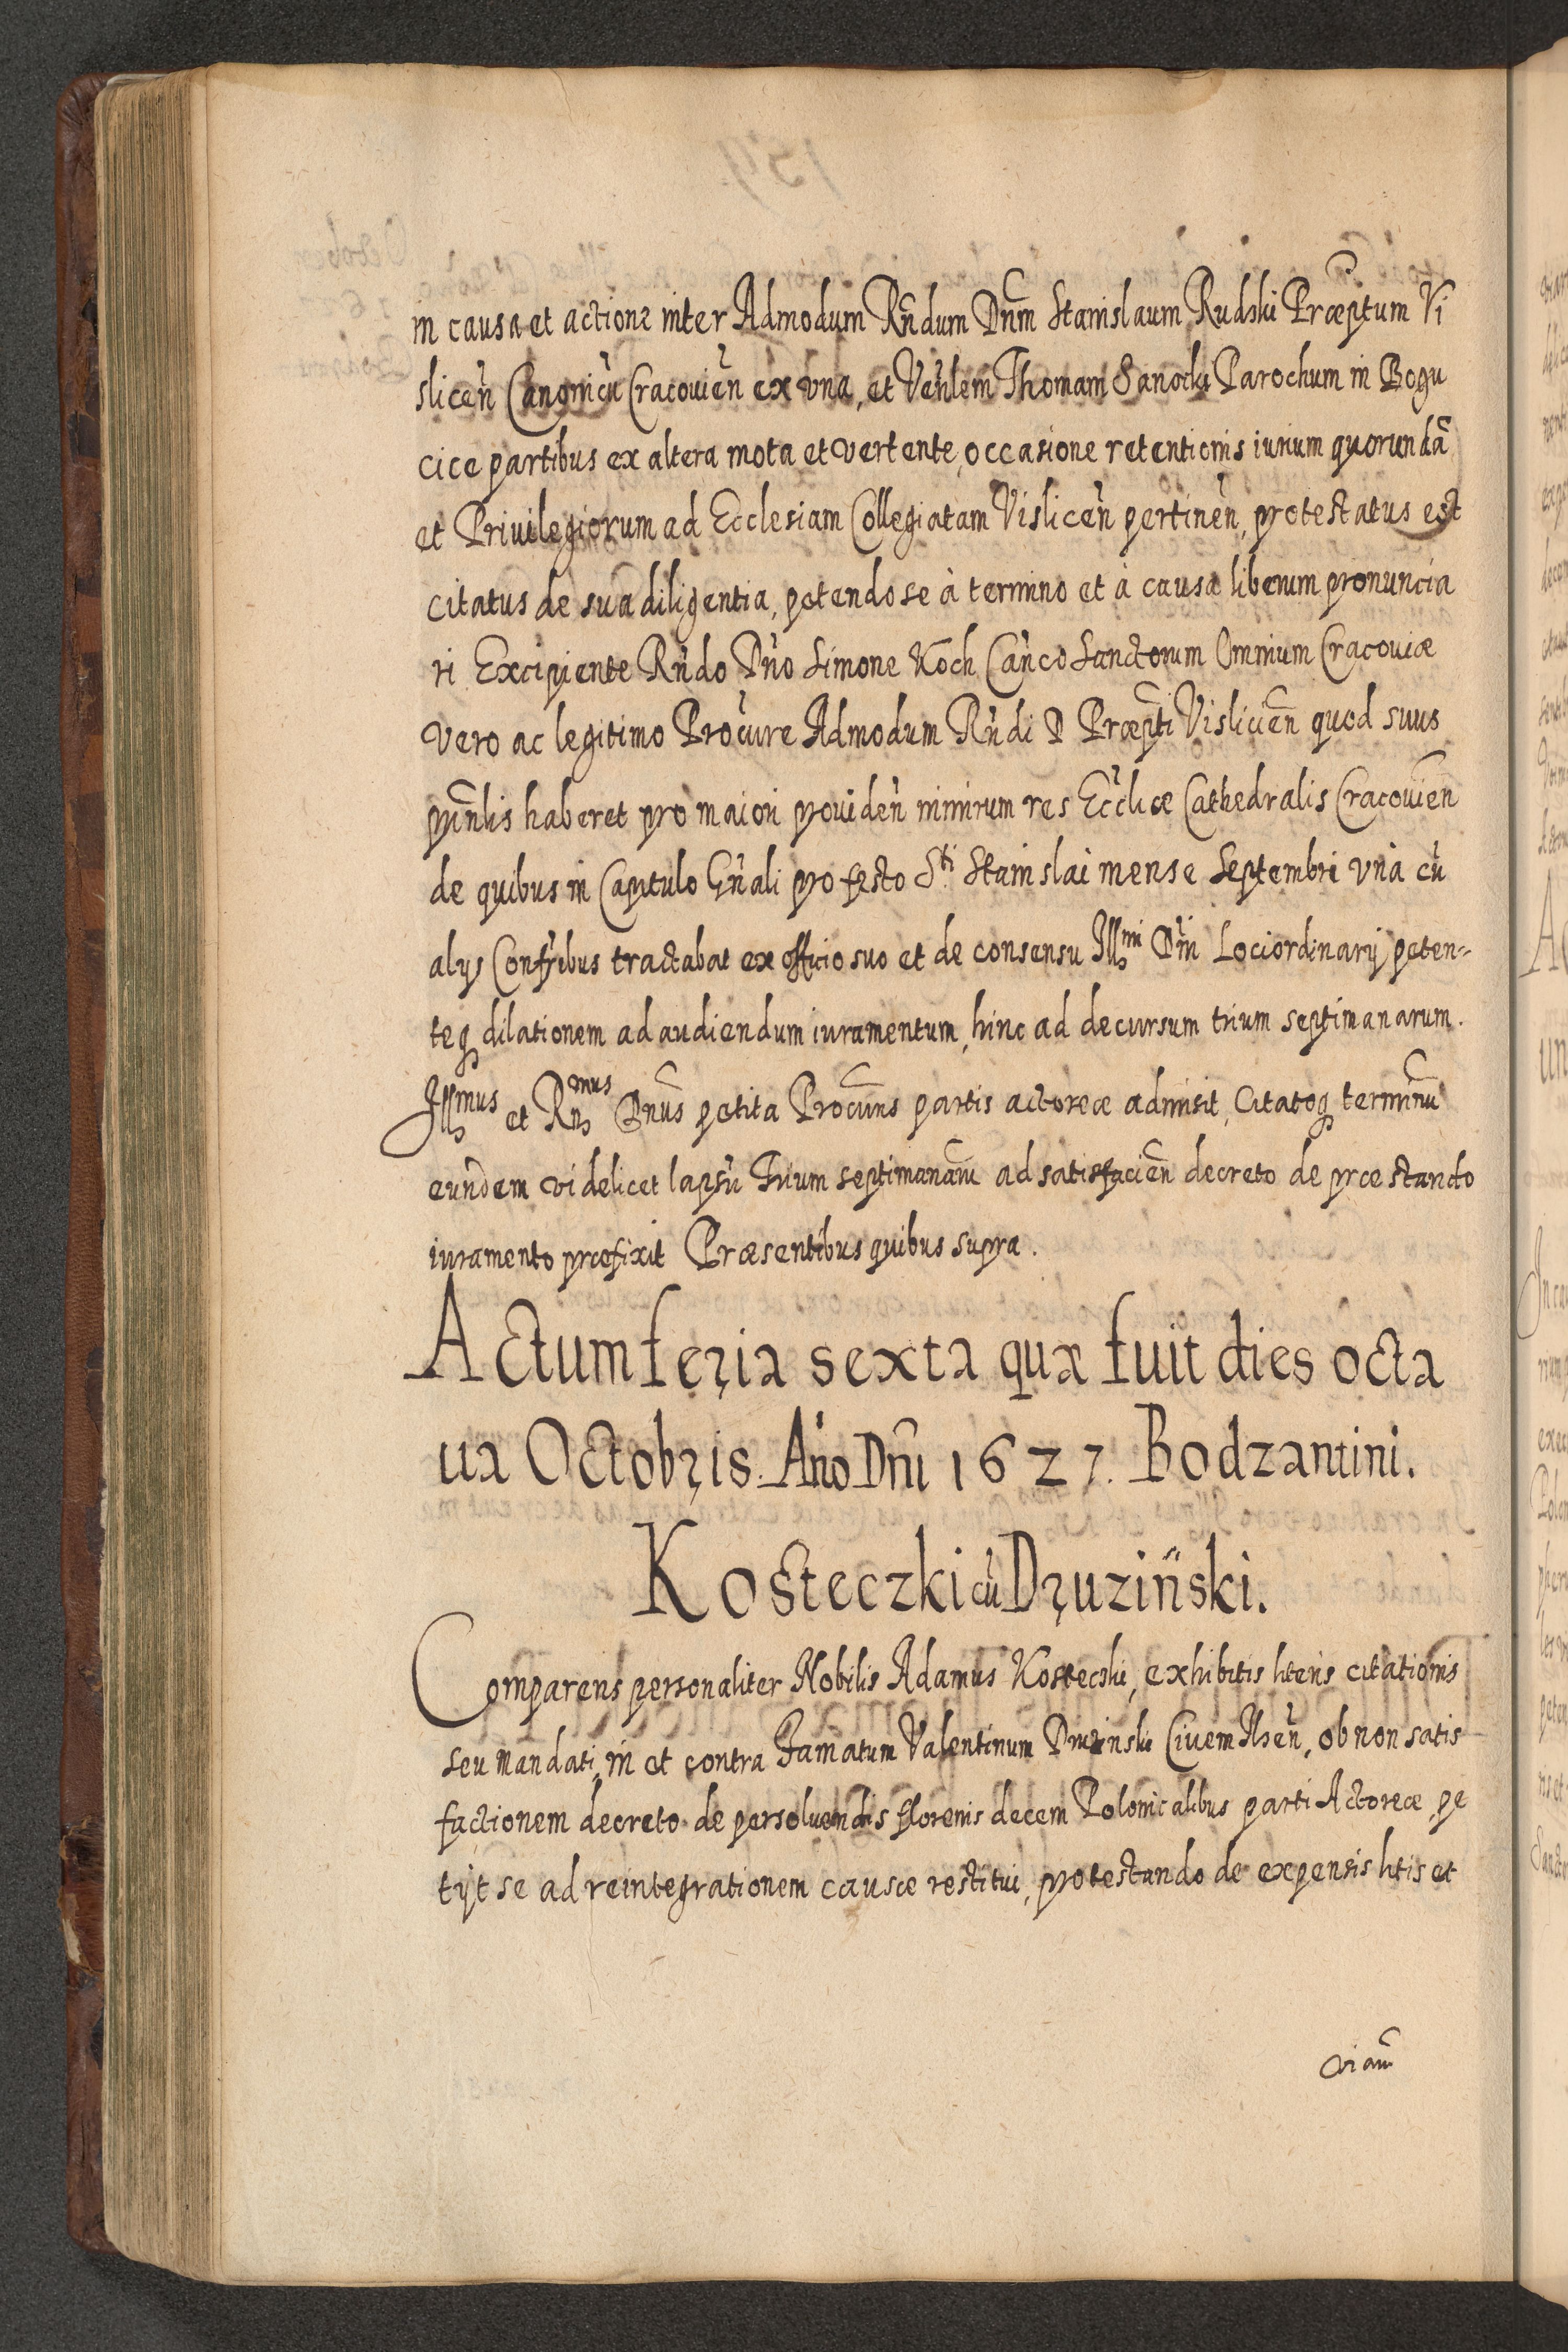 in causa et actione inter Admodum Rñdum Dñm Stanislaum Rudski Præptum Vi
slicen̄ Canonicū Cracouien̄ ex vna, et Veñlem Thomam Sanocki Parochum in Bogu
cice partibus ex altera mota et vertente, occasione retentionis iurium quorundā
et Priuilegiorum ad Ecclesiam Collegiatam Vislicen̄ pertinen̄, protestatus est
citatus de sua diligentia, petendo se à termino et à causa liberum pronuncia
ri Excipiente Rñdo Dño Simone Koch Cañco Sanctorum Omnium Cracouiæ
vero ac legitimo Procure Admodum Rñdi D Præpti Vislicien̄ quod suus
prinlis haberet pro maiori prouiden̄ nimirum res Ecc̄liæ Cathedralis Cracouien̄
de quibus in Capitulo Gñali pro festo S.ti Stanislai mense Septembri vnà cū
alijs Confribus tractabat ex officio suo et de consensu Illmi Dñi Lociordinarij peten-
teq dilationem ad audiendum iuramentum, hinc ad decursum trium septimanarum.
Illmus et Rñmus Dñus petita Procuris partis actoreæ admisit, Citatoq terminū
eundem videlicet lapsū Trium septimanarū ad satisfacien̄ decreto de præstando
iuramento præfixit Præsentibus quibus supra.
Actum feria sexta quæ fuit dies octa
ua Octobris. Año Dñi 1627. Bodzantini.
Kosteczki cū Druzinski.
Comparens personaliter Nobilis Adamus Kostecski, exhibitis lr̄eris citationis
seu mandati, in et contra Famatum Valentinum Druzinski Ciuem Ilzen̄, ob non satis
factionem decreto de persoluendis florenis decem Polonicalibus parti Actoreæ, pe
tijt se ad reintegrationem causæ restitui, protestando de expensis litis et